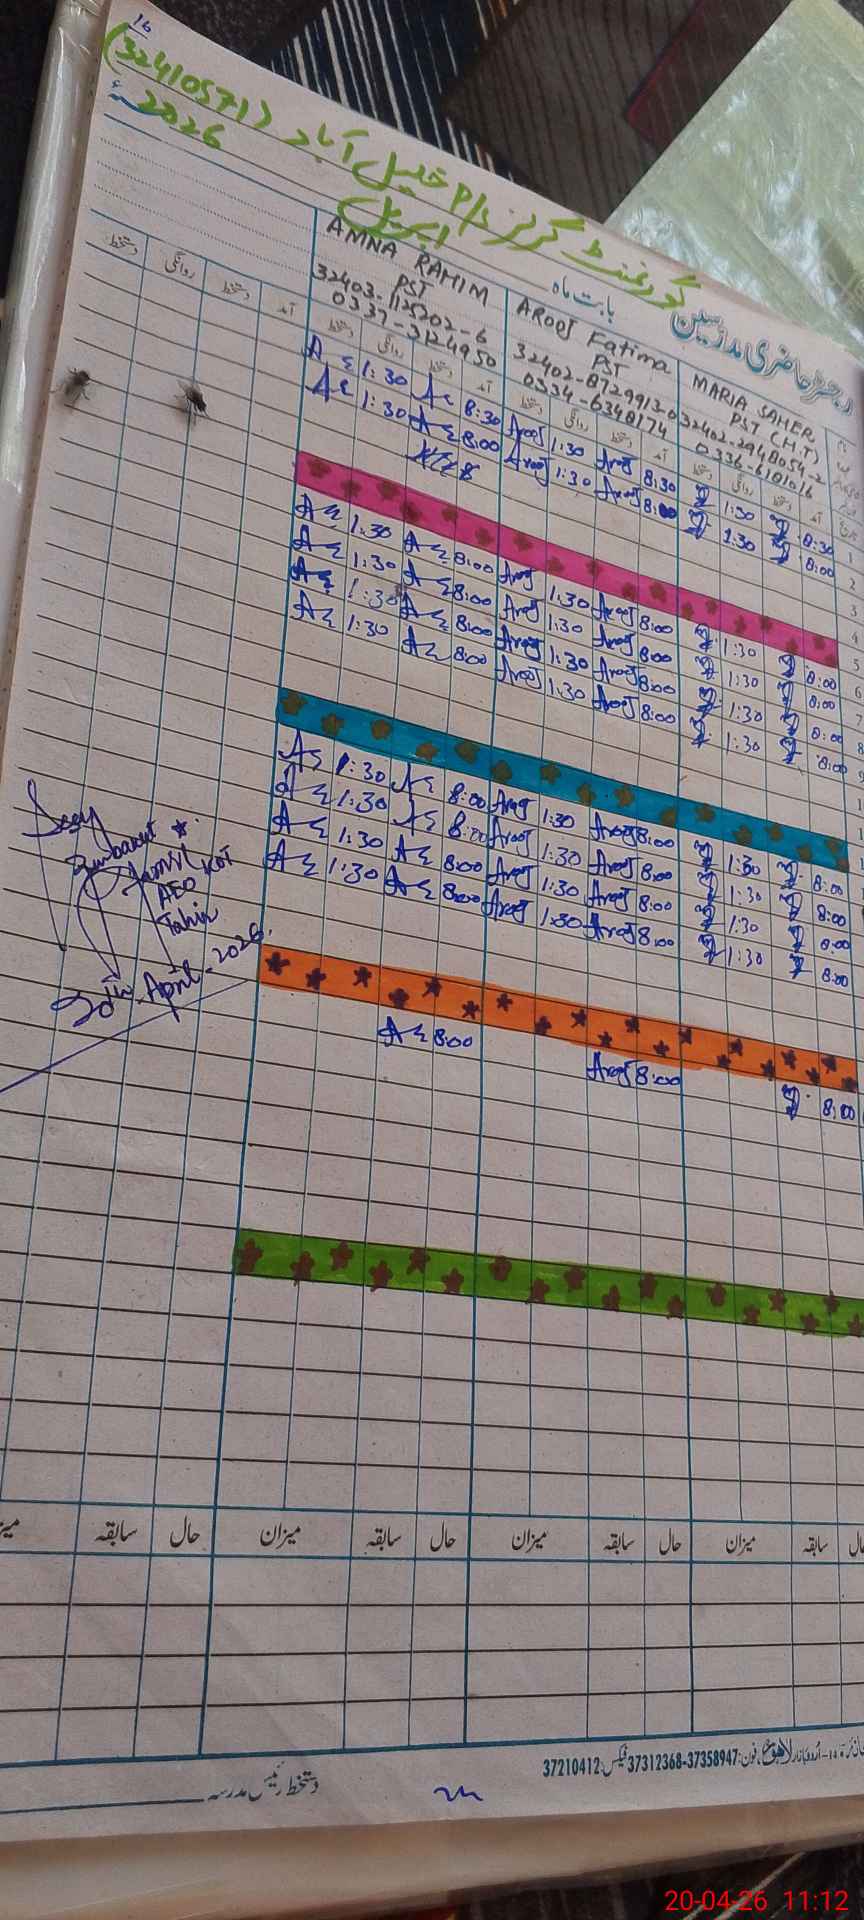 16
گورنمنٹ گرلز p/s خلیل آباد (32410571)
اپریل 2026ء
رجسٹر حاضری مدرسین
بابت ماہ
AMNA RAHIM
PST
32403-1125202-6
0337-3124950
AROOJ Fatima
PST
32402-8729913-0
0334-6348174
MARIA SAHER
PST (H.T)
32402-2948054-2
0336-6101016
دستخط روانگی دستخط آمد دستخط روانگی دستخط آمد دستخط روانگی دستخط آمد دستخط روانگی دستخط آمد
1:30 8:30 Arooj 1:30 Arooj 8:30 1:30 8:30 1
1:30 8:00 Arooj 1:30 Arooj 8:00 1:30 8:00 2
3
4
1:30 8:00 Arooj 1:30 Arooj 8:00 1:30 8:00 5
1:30 8:00 Arooj 1:30 Arooj 8:00 1:30 8:00
1:30 8:00 Arooj 1:30 Arooj 8:00 1:30 8:00 7
1:30 8:00 Arooj 1:30 Arooj 8:00 1:30 8:00 8
9
1:30 8:00 Arooj 1:30 Arooj 8:00 1:30 8:00
1:30 8:00 Arooj 1:30 Arooj 8:00 1:30 8:00
1:30 8:00 Arooj 1:30 Arooj 8:00 1:30 8:00
1:30 8:00 Arooj 1:30 Arooj 8:00 1:30 8:00
Jamil
AEO KOT
Tahir
20th April-2026.
8:00 Arooj 8:00 8:00
سابقہ حال میزان سابقہ حال میزان سابقہ حال میزان سابقہ
دستخط رئیس مدرسہ
اردو بازار لاہور، فون: 37358947-37312368 فیکس: 37210412
20-04-26 11:12